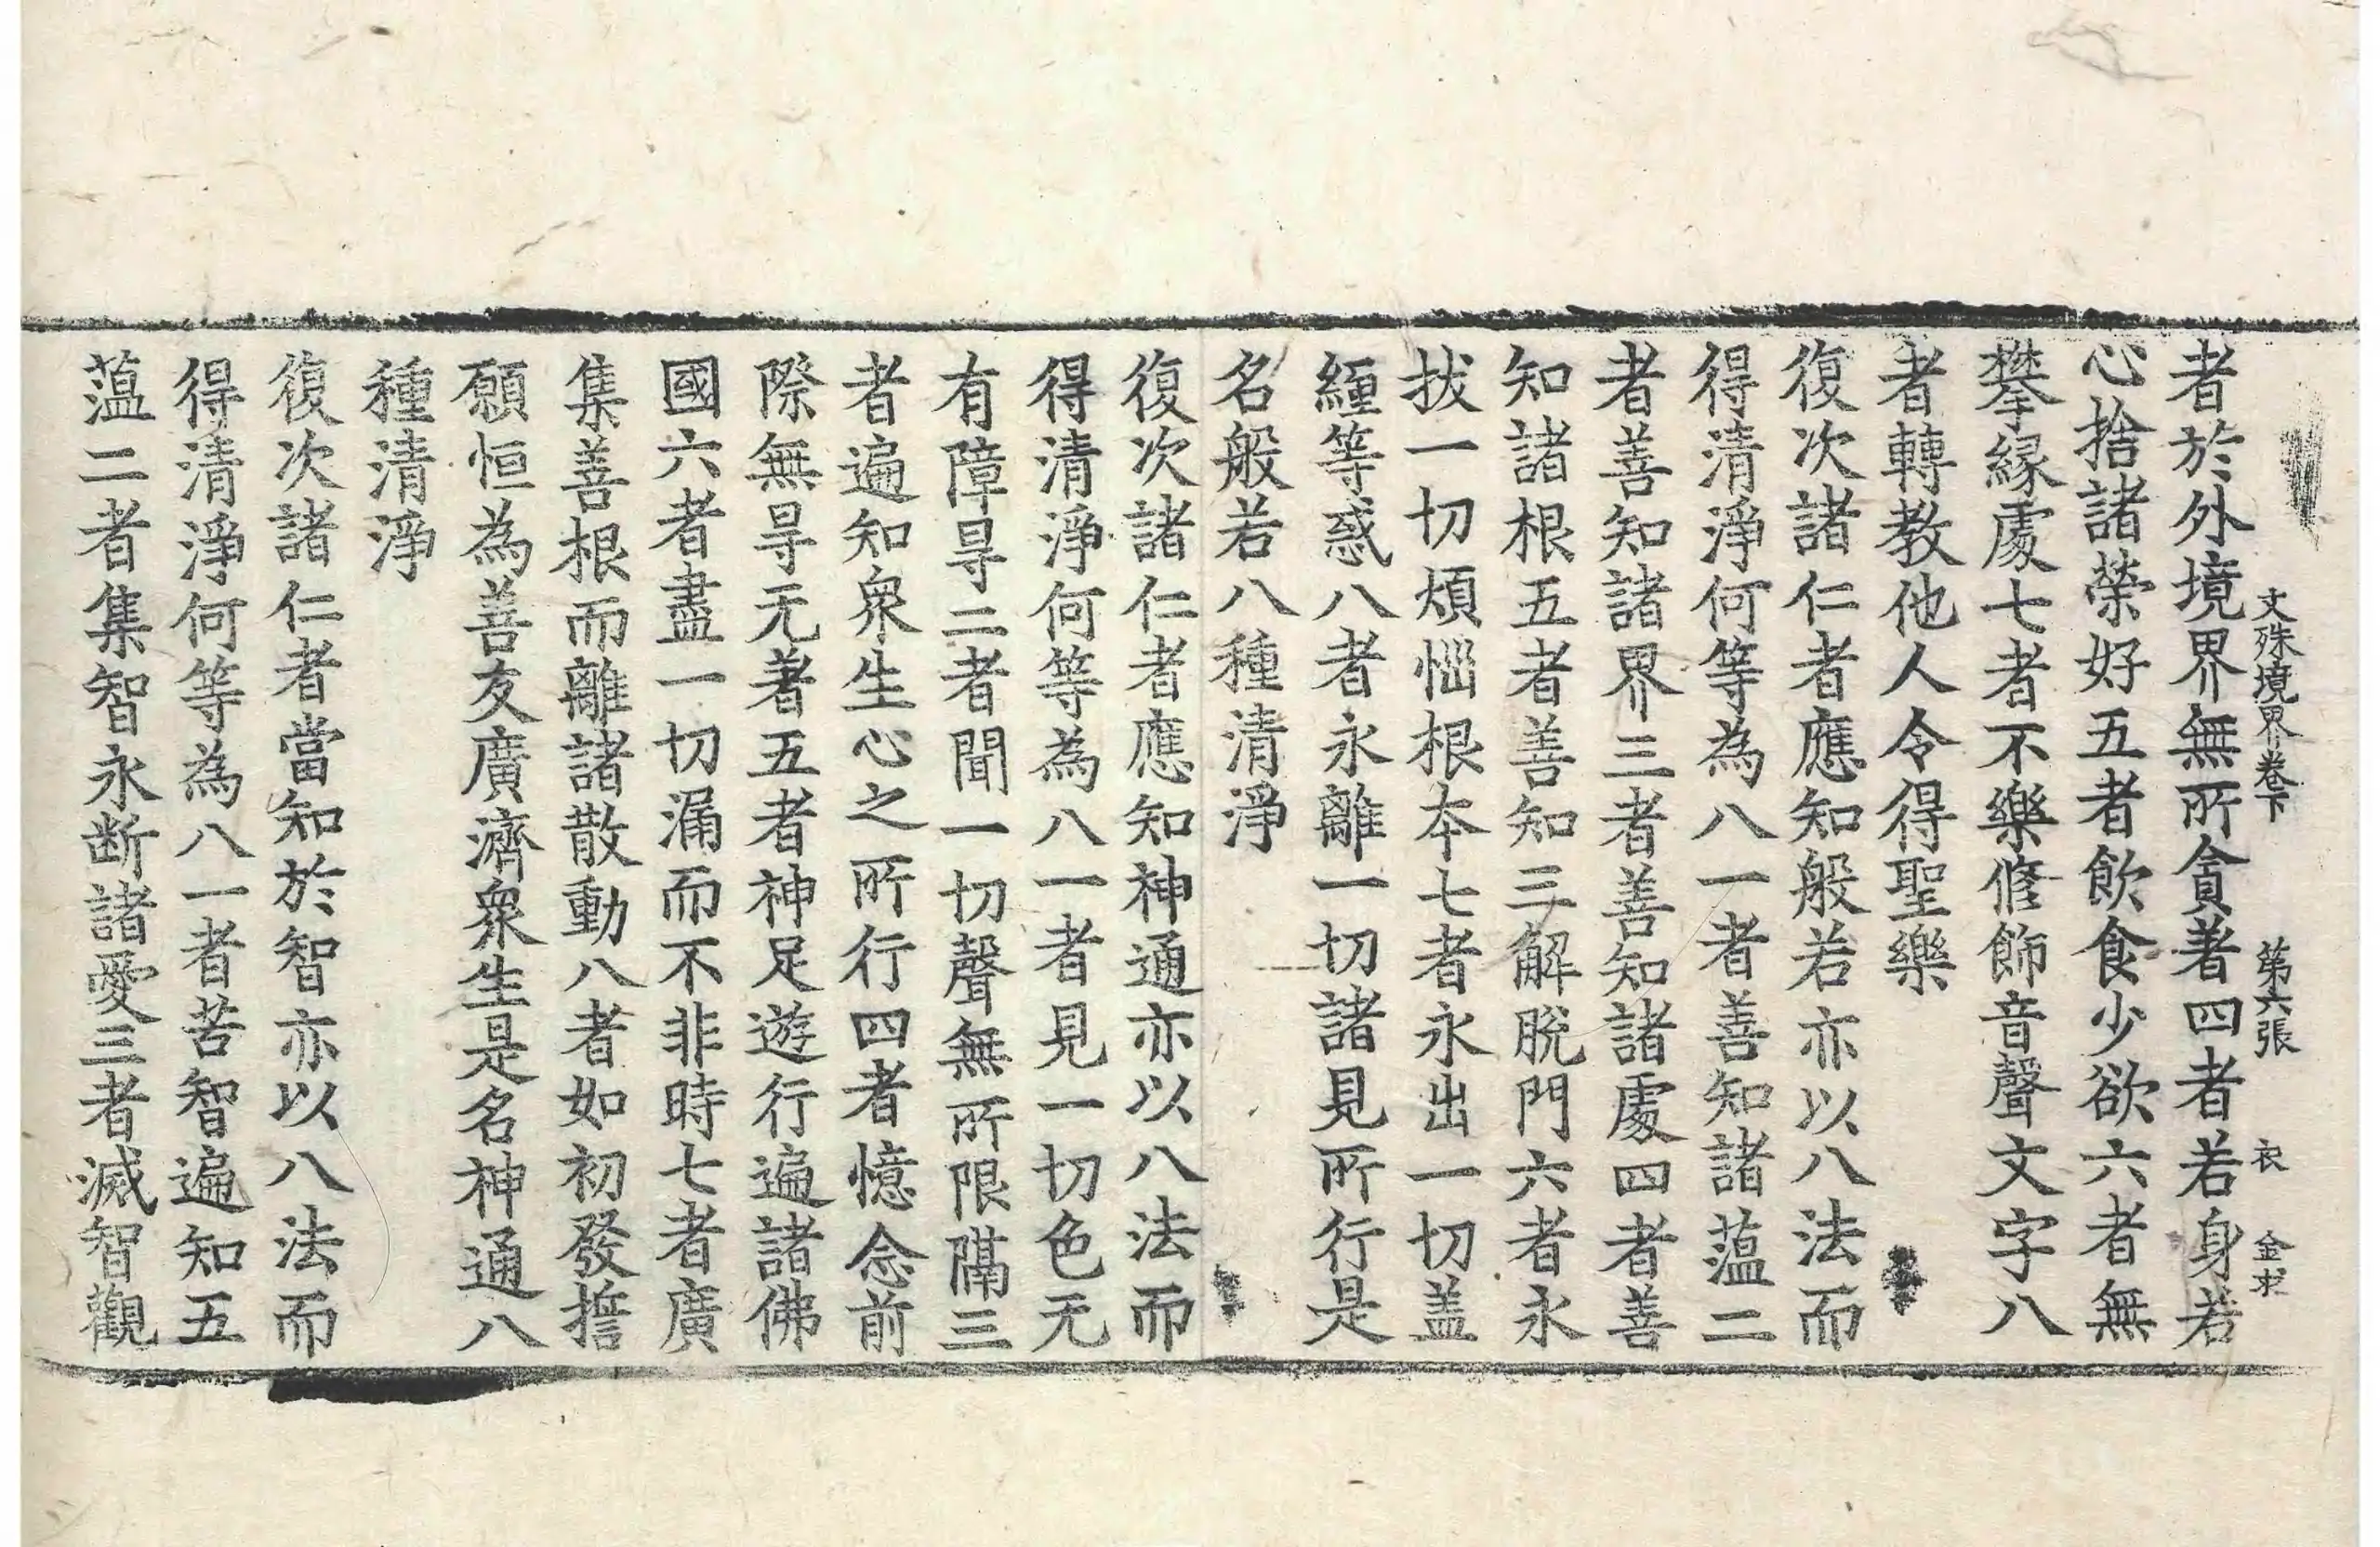 文殊境界卷下 第六張 衣 金求
者於外境界無所貪著四者若身若
心捨諸榮好五者飲食少欲六者無
攀縁處七者不樂修飾音聲文字八
者轉教他人令得聖樂
復次諸仁者應知般若亦以八法而
得清淨何等為八一者善知諸蕰二
者善知諸界三者善知諸處四者善
知諸根五者善知三解脫門六者永
拔一切煩惱根本七者永出一切盖
纒等惑八者永離一切諸見所行是
名般若八種清淨
復次諸仁者應知神通亦以八法而
得清淨何等為八一者見一切色无
有障㝵二者聞一切聲無所限隔三
者遍知衆生心之所行四者憶念前
際無㝵无著五者神足遊行遍諸佛
國六者盡一切漏而不非時七者廣
集善根而離諸散動八者如初發擔
願恒為善友廣濟衆生是名神通八
種清淨
復次諸仁者當知於智亦以八法而
得清淨何等為八一者苦智遍知五
蕰二者集智永断諸愛三者滅智觀